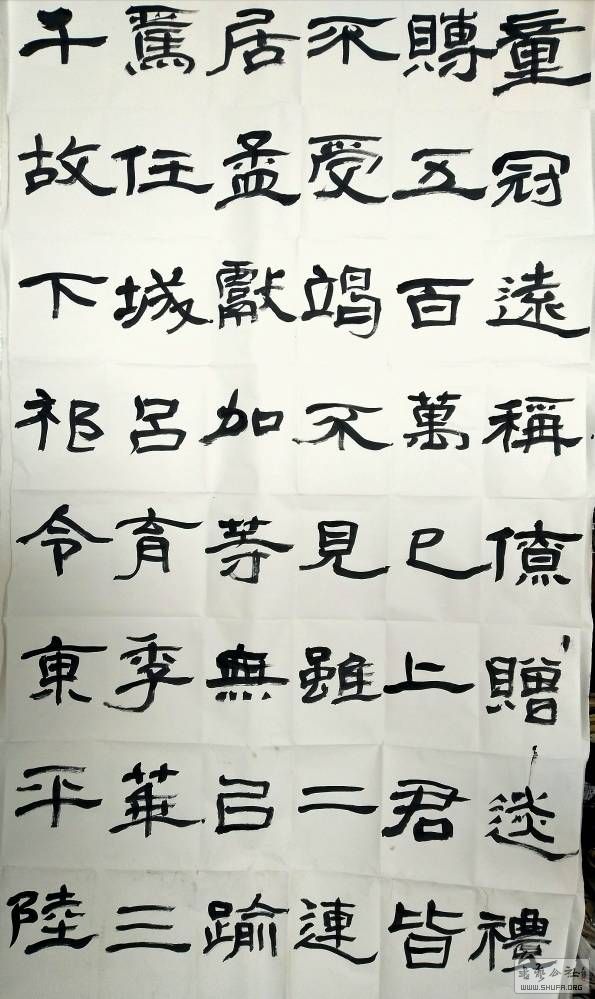 童冠遠稱僚贈送禮
賻五百萬已上君皆
不受竭不見雖二連
居孟獻加等無㠯踰
焉任城呂育季華三
千故下祁令東平陸
書藝公社
WWW.SHUFA.ORG